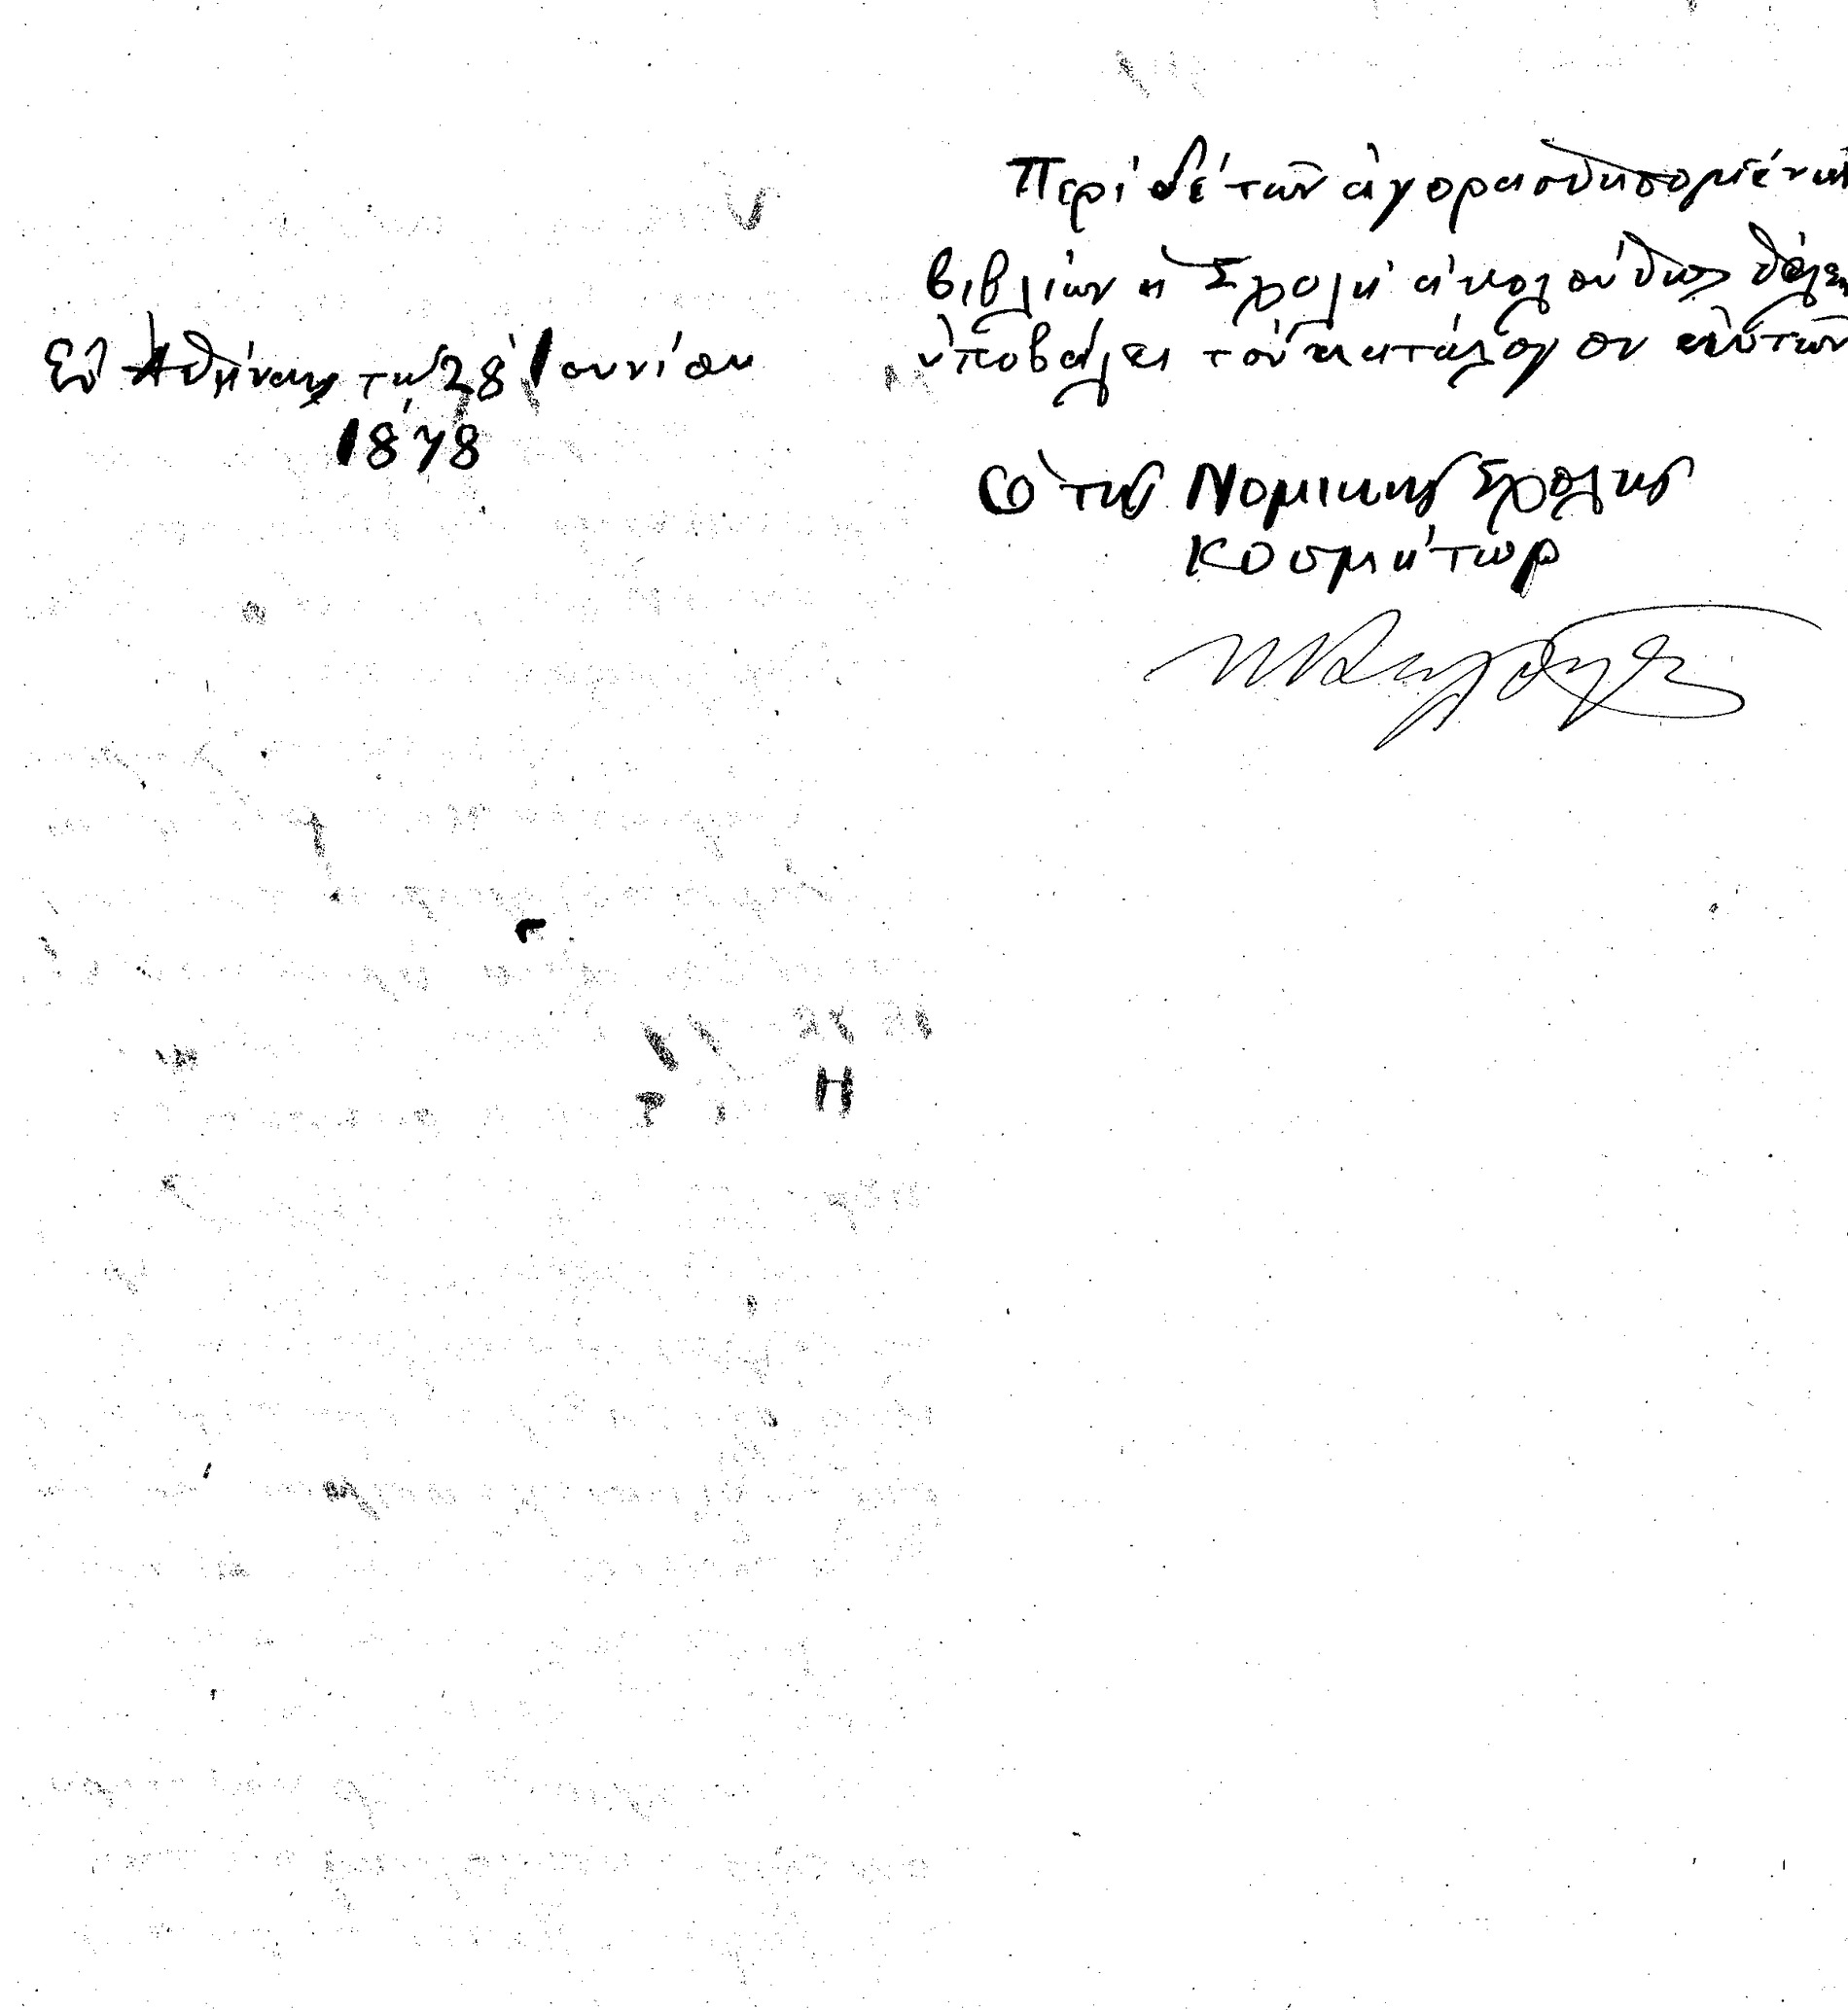 Περὶ δὲ τῶν ἀγορασθησομένων
βιβλίων ἡ Σχολὴ ἀκολούθως θέλει
ὑποβάλει τὸν κατάλογον αὐτῶν
Ἐν Ἀθήναις τῇ 28 Ἰουνίου
1878
Ὁ τῆς Νομικῆς Σχολῆς
Κοσμήτωρ